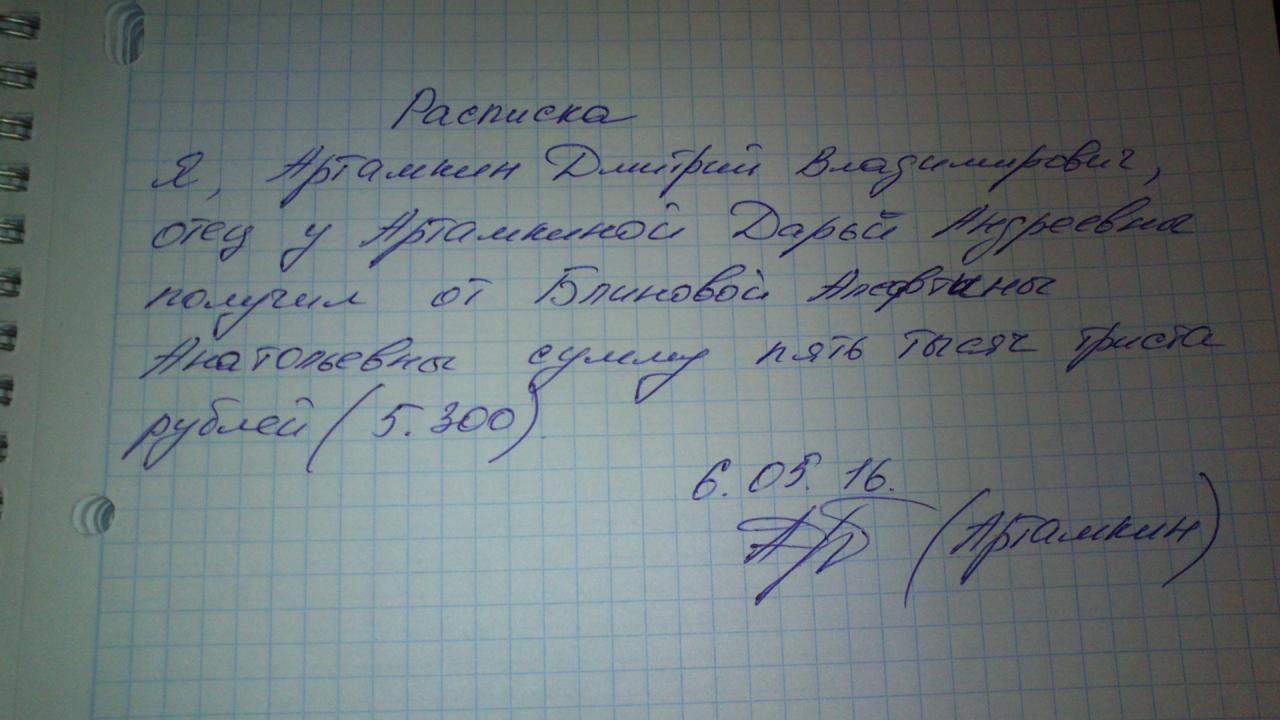 Расписка
Я, Артамкин Дмитрий Владимирович,
отец у Артамкиной Дарьй Андреевна
получил от Блиновой Алефтины
Анатольевны сумму пять тысяч триста
рублей (5.300).
6.05.16.
(Артамкин)